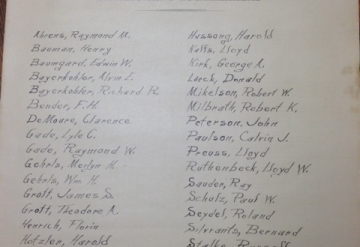 Ahrens, Raymond M.
Bauman, Henry
Baumgard, Edwin W.
Bayerkohler, Alvin L.
Bayerkohler, Richard R.
Bender, F.H.
DeMoure, Clarence
Gade, Lyle C.
Gade, Raymond W.
Gehris, Merlyn H.
Gehris, Wm H.
Graff, James S.
Graff, Theodore A.
Herrich, Florin
Hotzler, Harold
Hussong, Harold
Kells, Lloyd
Kirk, George A.
Lerch, Donald
Mikelson, Robert W.
Milbrath, Robert K.
Peterson, John
Paulson, Calvin J.
Preuss, Lloyd
Ruthenbeck, Lloyd W.
Sander, Ray
Schulz, Paul W.
Seydel, Roland
Silvrants, Bernard